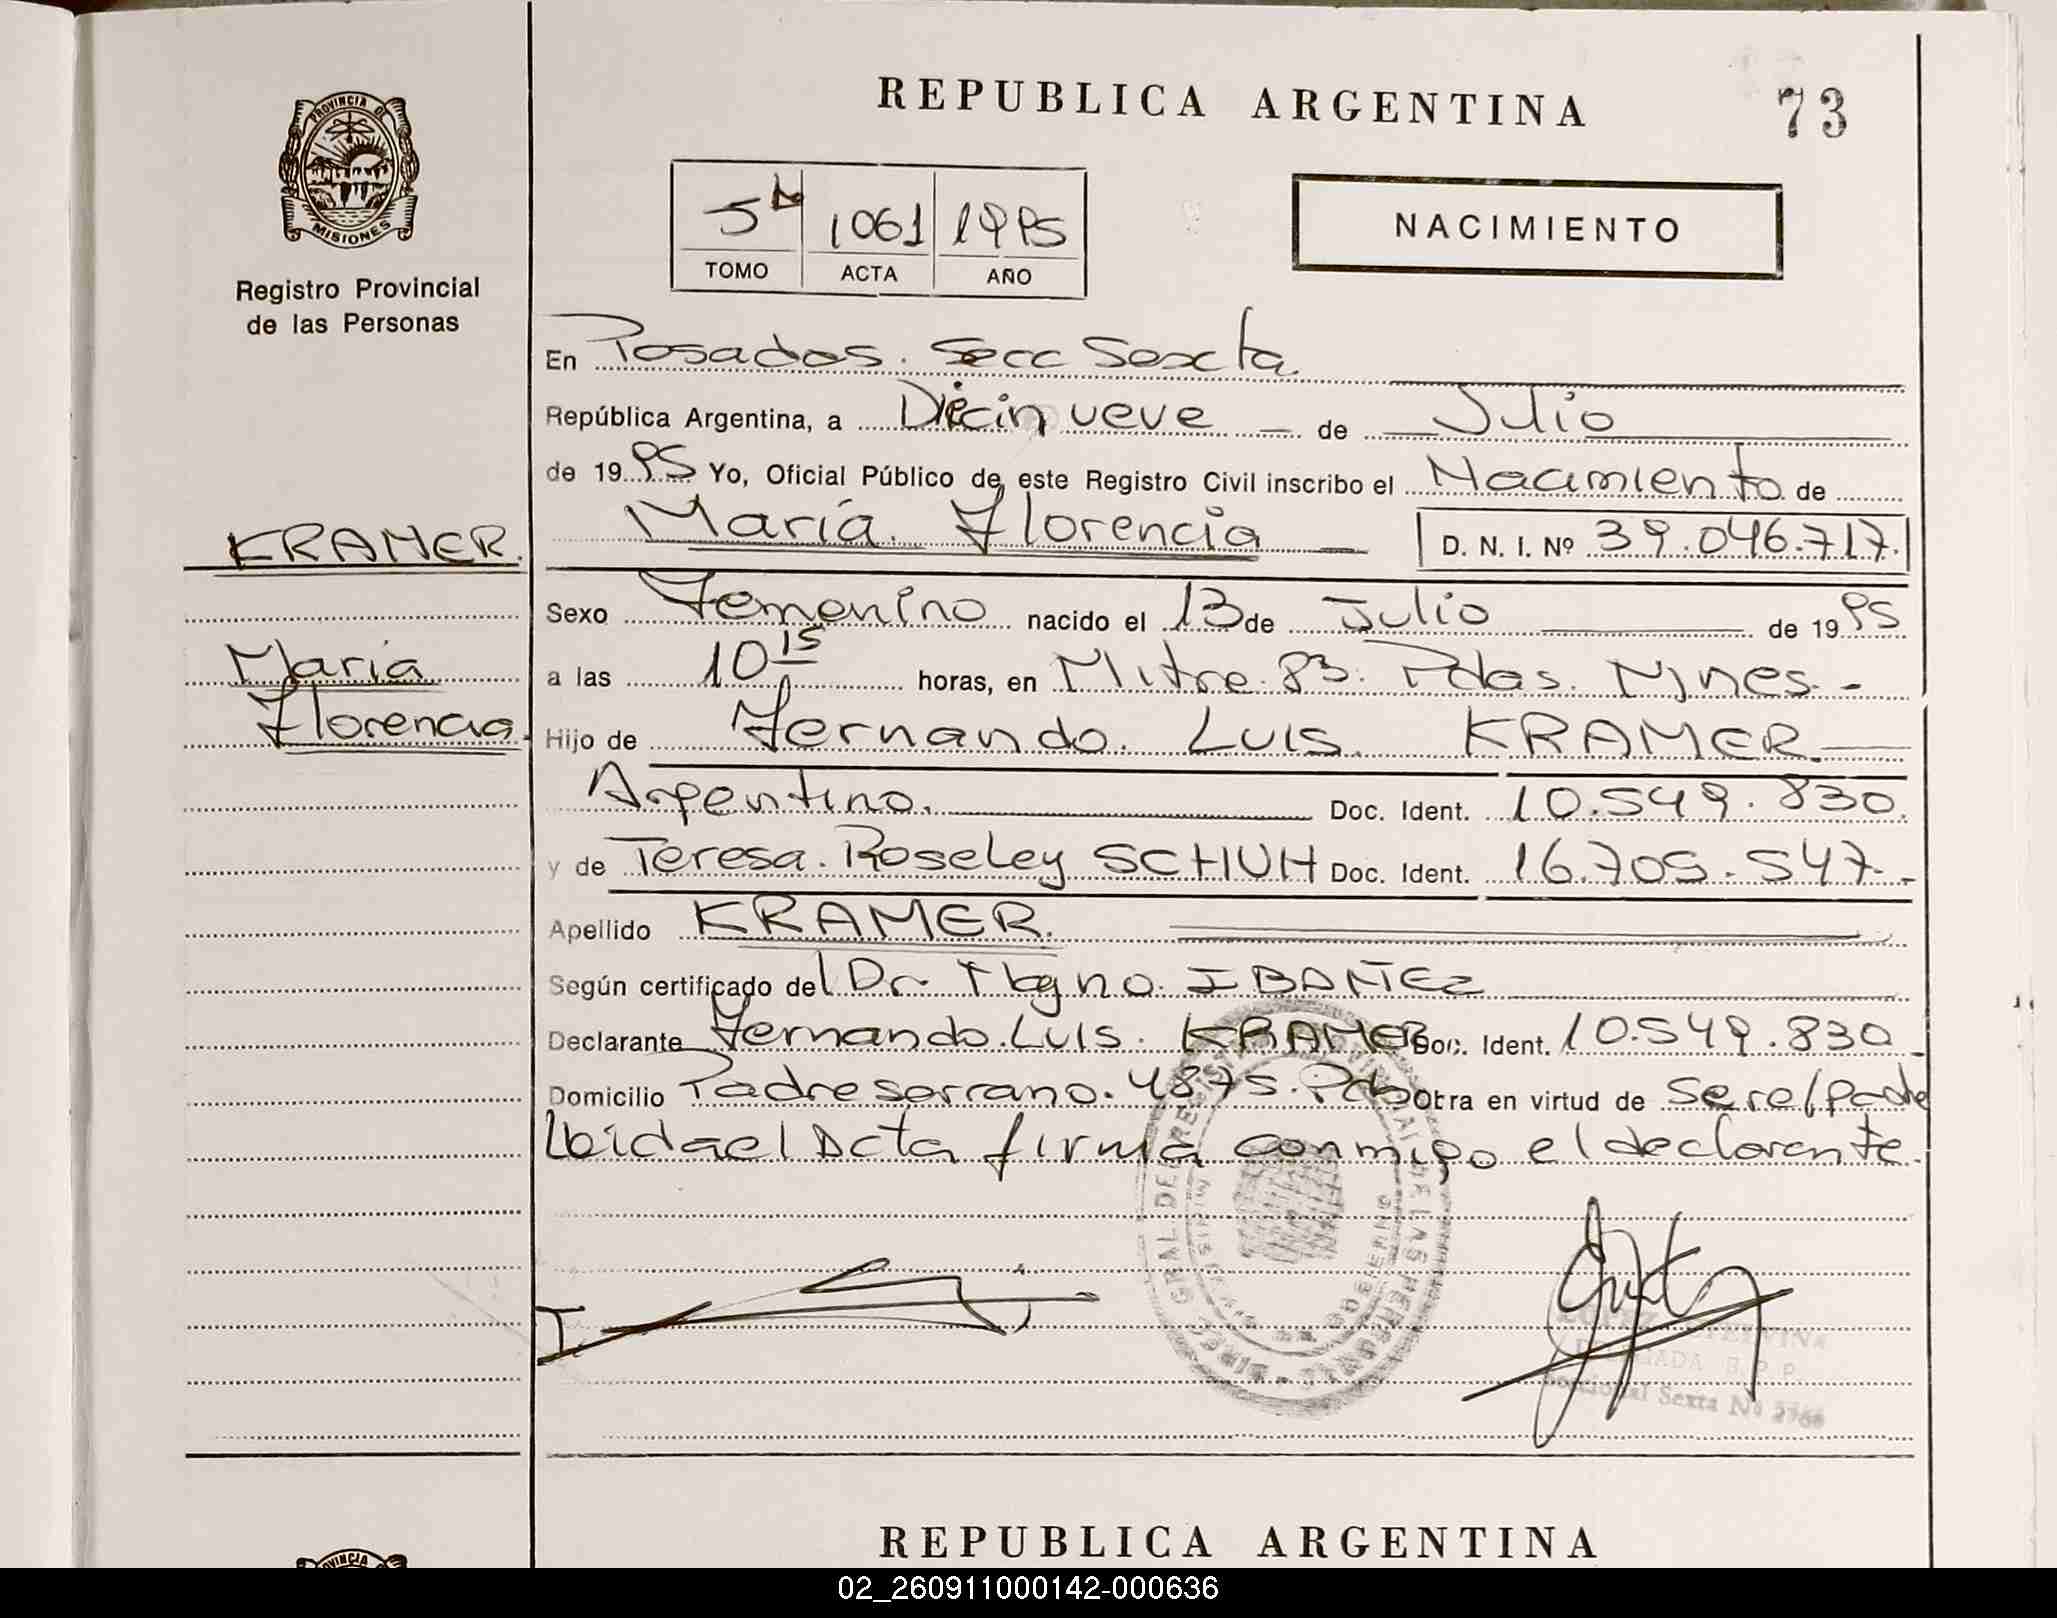 REPUBLICA ARGENTINA
73
PROVINCIA DE
MISIONES
Registro Provincial
de las Personas
1061 1995
TOMO ACTA AÑO
NACIMIENTO
En Posadas. Secc Sexta
República Argentina, a Diecinueve de Julio
de 1995 Yo, Oficial Público de este Registro Civil inscribo el Nacimiento de
María Florencia D. N. I. Nº 39.046.717.
KRAMER.
María
Florencia
Sexo Femenino nacido el 13 de Julio de 1995
a las 10 15 horas, en Mitre 83. Pdas. Mnes.-
Hijo de Fernando Luis. KRAMER
Argentino. Doc. Ident. 10.549.830.
y de Teresa. Roseley SCHUH Doc. Ident. 16.705.547.-
Apellido KRAMER.
Según certificado del Dr. IBAÑEZ
Declarante Fernando Luis. KRAMER Doc. Ident. 10.549.830
Domicilio Padre Serrano. 4875. Obra en virtud de ser el padre
Leída el Acta firma conmigo el declarante.
Seccional Sexta Nº
REPUBLICA ARGENTINA
02_260911000142-000636